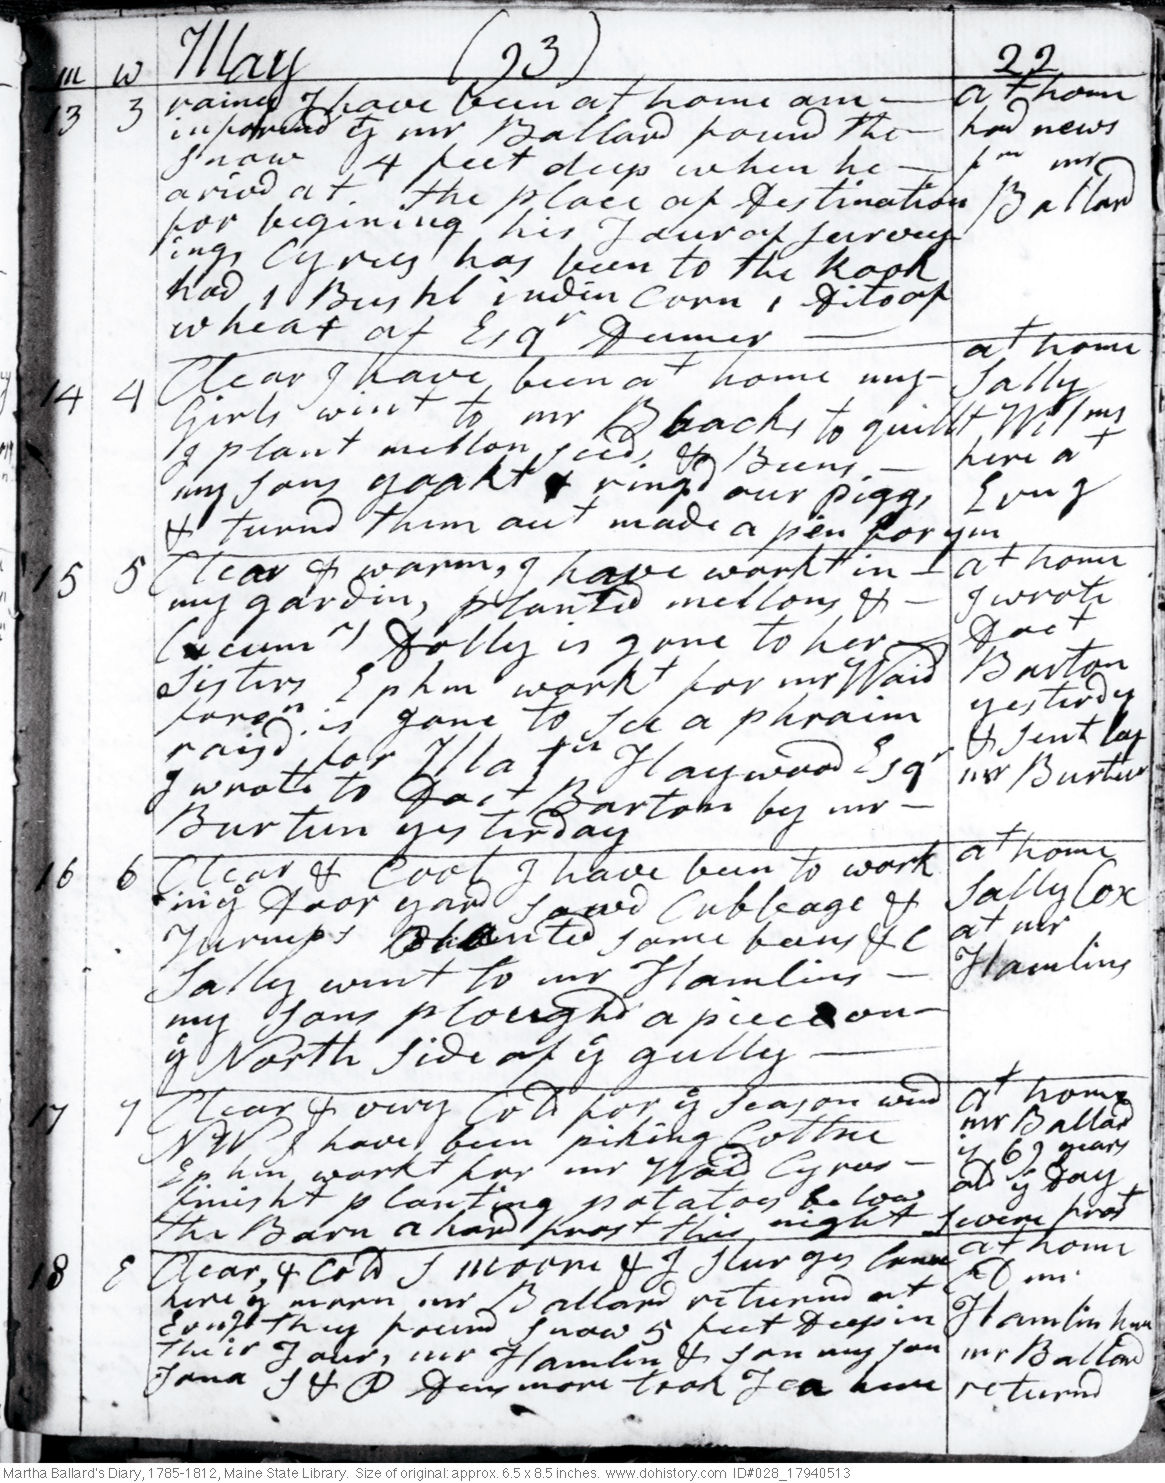 m w May (23) 22
13 3 rainy I have been at home am
informd yt mr Ballard found the
Snow 4 feet deep when he
arivd at the place of Destination
for begining his Tour of survey
ing, Cyrus has been to the Hook
had 1 Bushl indin Corn 1 Dito of
wheat of Esqr Dumer
at home
had news
fm mr
Ballard
14 4 Clear I have been at home my
Girls wint to mr Blacks to quillt
I plant mellon seeds & Beens
my sons yoakt & ringd our piggs
& turnd them out made a pen for ym
at home
Sally
Wilms
here at
Evng
15 5 Clear & warm, I have workt in
my gardin, planted mellons &
Cucumrs Dolly is gone to her
Sisters Ephm workt for mr Waid
foren. is gone to see a phraim
raisd for Natn Haywood Esqr
I wrote to Doct Barton by mr
Burtun yesterday
at home
I wrote
Doct
Barton
yesterdy
& sent by
mr Burtun
16 6 Clear & Cool I have been to work
in ye Door yard sowd Cubbage &
Turnips planted some beens &C
Sally went to mr Hamlins
my sons plought a piece on
ye North side of ye gully
at home
Sally Cox
at mr
Hamlins
17 7 Clear & very Cold for ye season wind
NW I have been piking Cottne
Ephm workt for mr Waid Cyrus
finisht planting potatoes below
the Barn a hard frost this night
at home
mr Ballard
is 69 years
old ys Day
severe frost
18 E Clear, & Cold S moore & J Sturges Came
here ys morn mr Ballard returnd at
Evng they found snow 5 feet Deep in
their Tour, mr Hamlin & son my son
Jona S & D Densmore took Tea here
at home
mr
Hamlin here
mr Ballard
returnd
Martha Ballard's Diary, 1785-1812, Maine State Library. Size of original: approx. 6.5 x 8.5 inches. www.dohistory.com ID#028_17940513